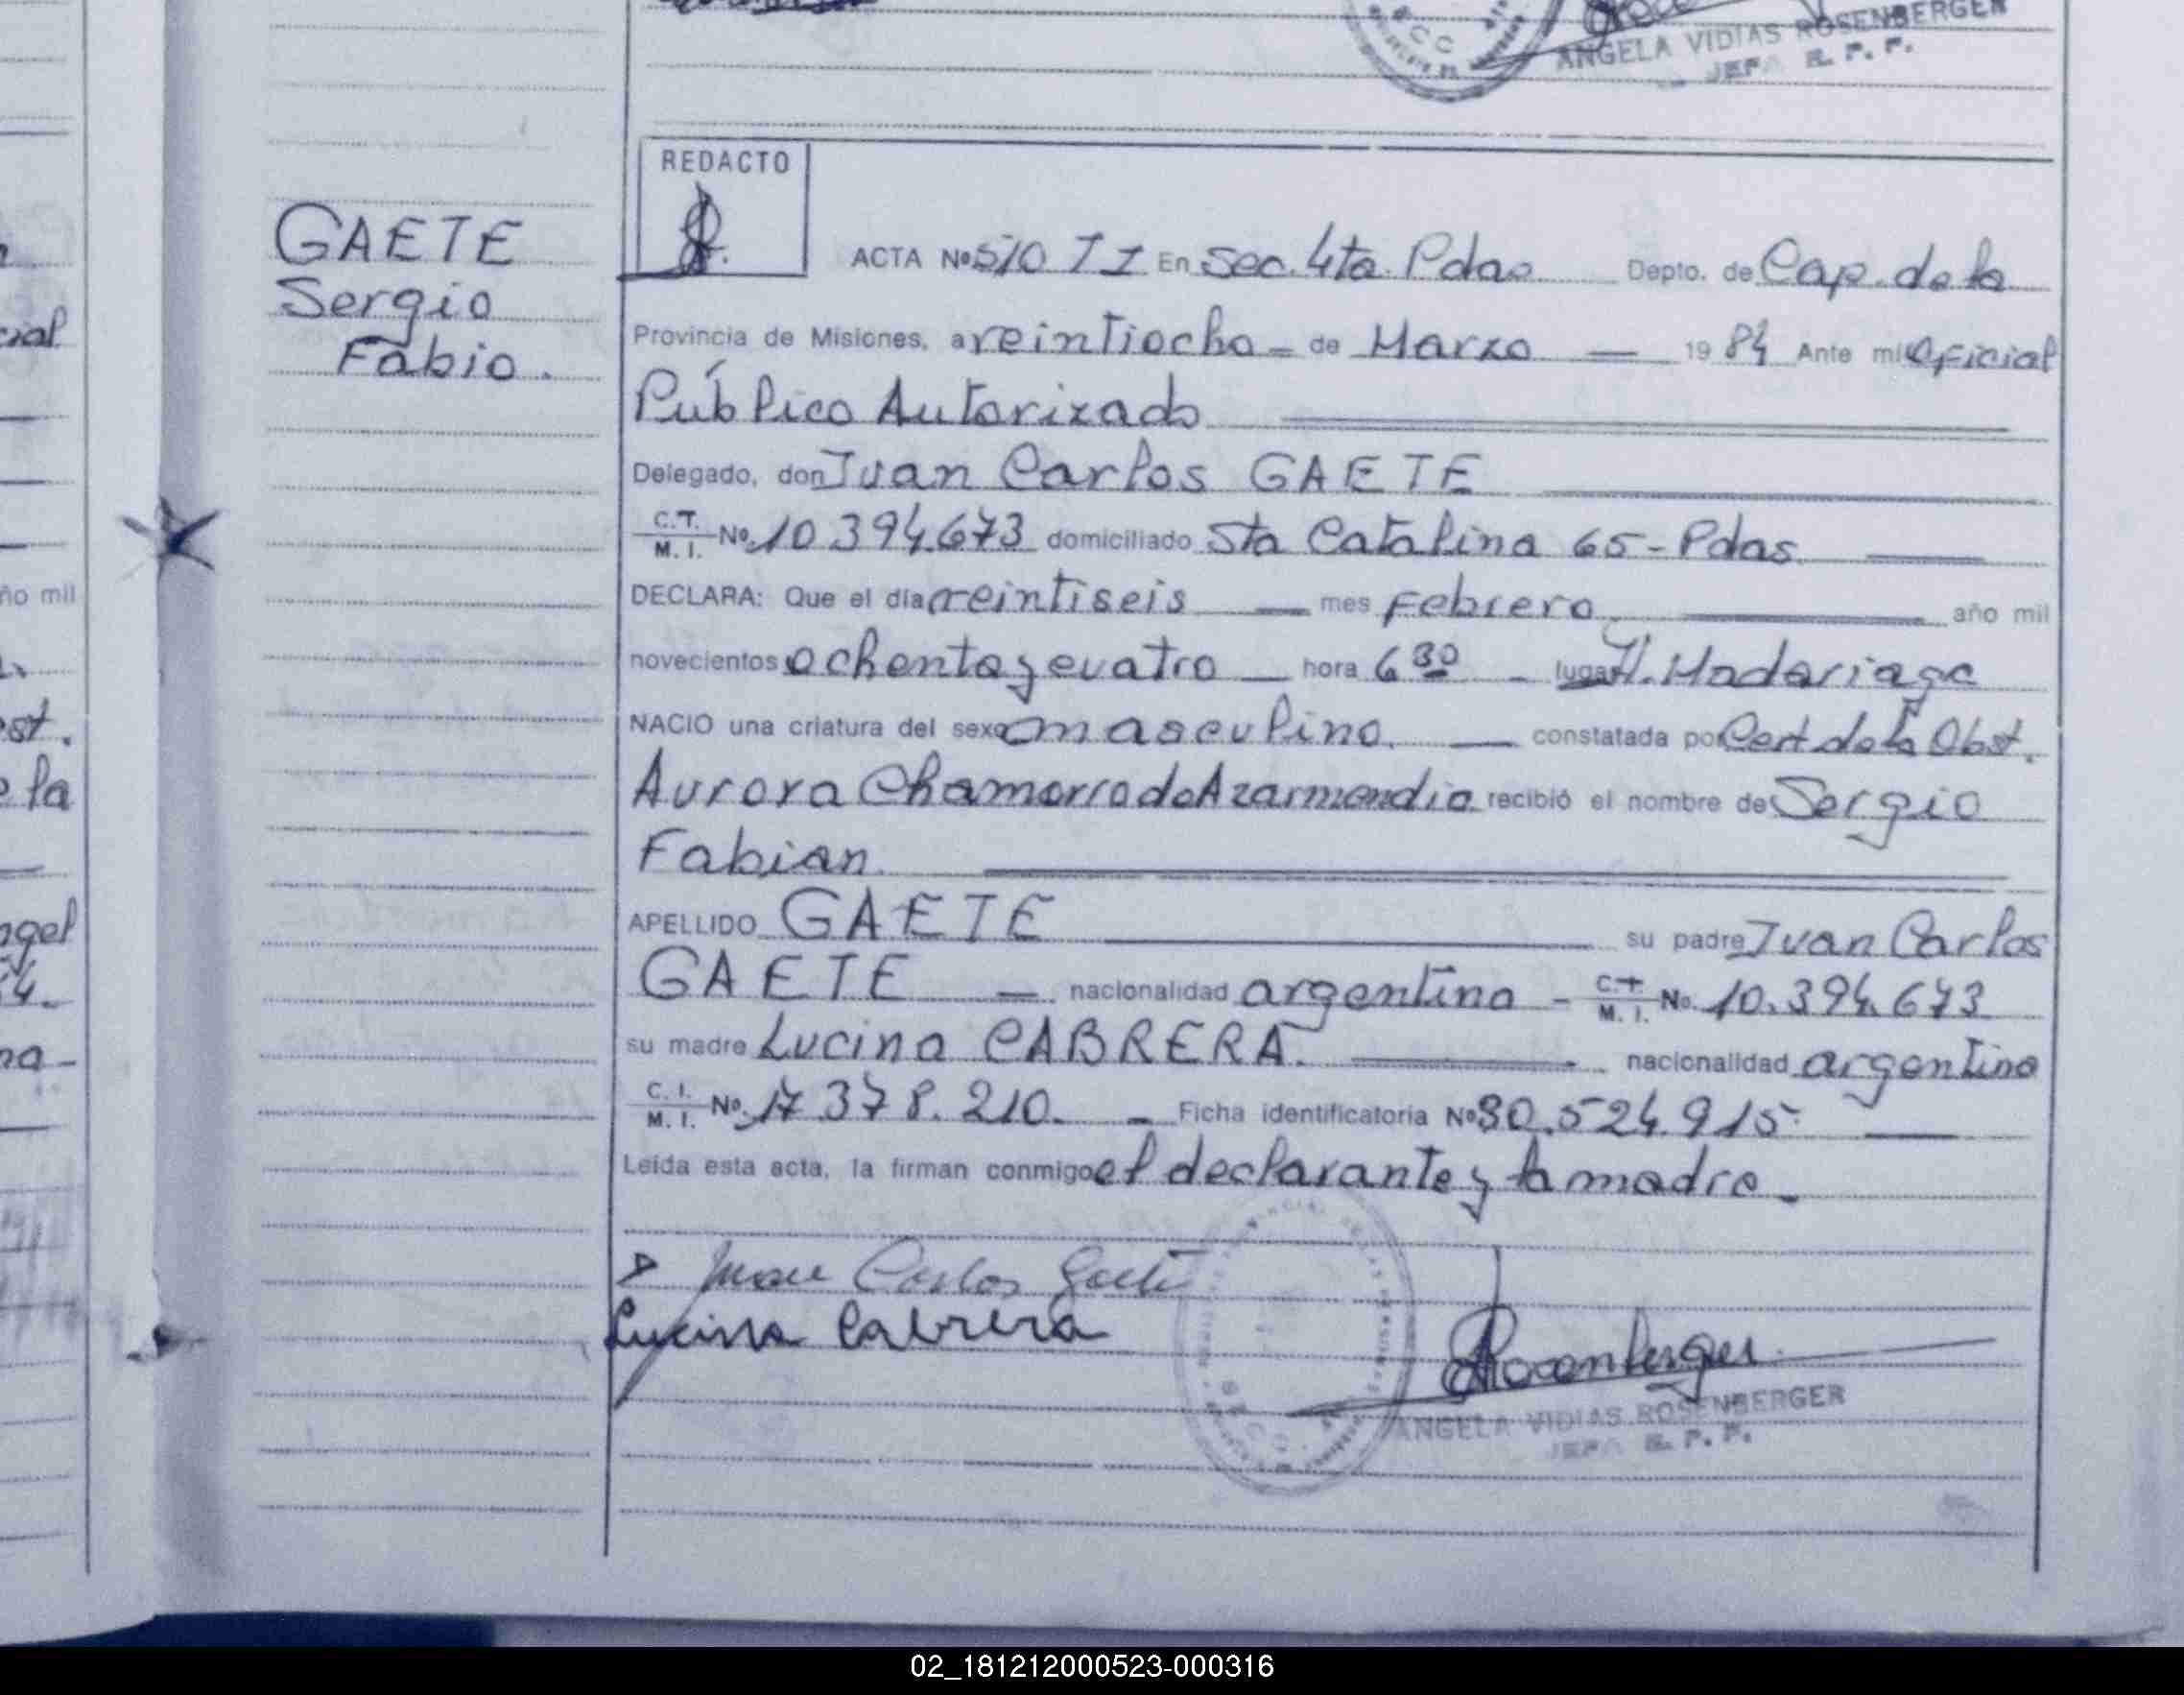 ANGELA VIDIAS ROSENBERGER
JEFA R. P. P.
REDACTO
GAETE
Sergio
Fabio.
ACTA Nº 510 T I En Sec. 4ta. Pdas Depto. de Cap. de la
Provincia de Misiones, a veintiocho - de Marzo — 19 84 Ante mi Oficial
Público Autorizado
Delegado, don Juan Carlos GAETE
C.T. M. I. Nº 10.394.673 domiciliado Sta Catalina 65 - Pdas.
DECLARA: Que el día veintiseis — mes Febrero — año mil
novecientos ochenta y cuatro — hora 6 30 - lugar H. Madariaga
NACIO una criatura del sexo masculino. — constatada por Cert de la Obst.
Aurora Chamorro de Azarmendia recibió el nombre de Sergio
Fabian
APELLIDO GAETE su padre Juan Carlos
GAETE — nacionalidad argentina - C.T. M. I. No. 10.394.673
su madre Lucina CABRERA. — nacionalidad argentina
C. I. M. I. Nº 17.378.210. - Ficha identificatoria Nº 30.524.915 —
Leída esta acta, la firman conmigo el declarante y la madre -
Juan Carlos Gaete
Lucina Cabrera
Rosenberger
ANGELA VIDIAS ROSENBERGER
JEFA R. P. P.
ial
ño mil
st.
e la
ngel
02_181212000523-000316